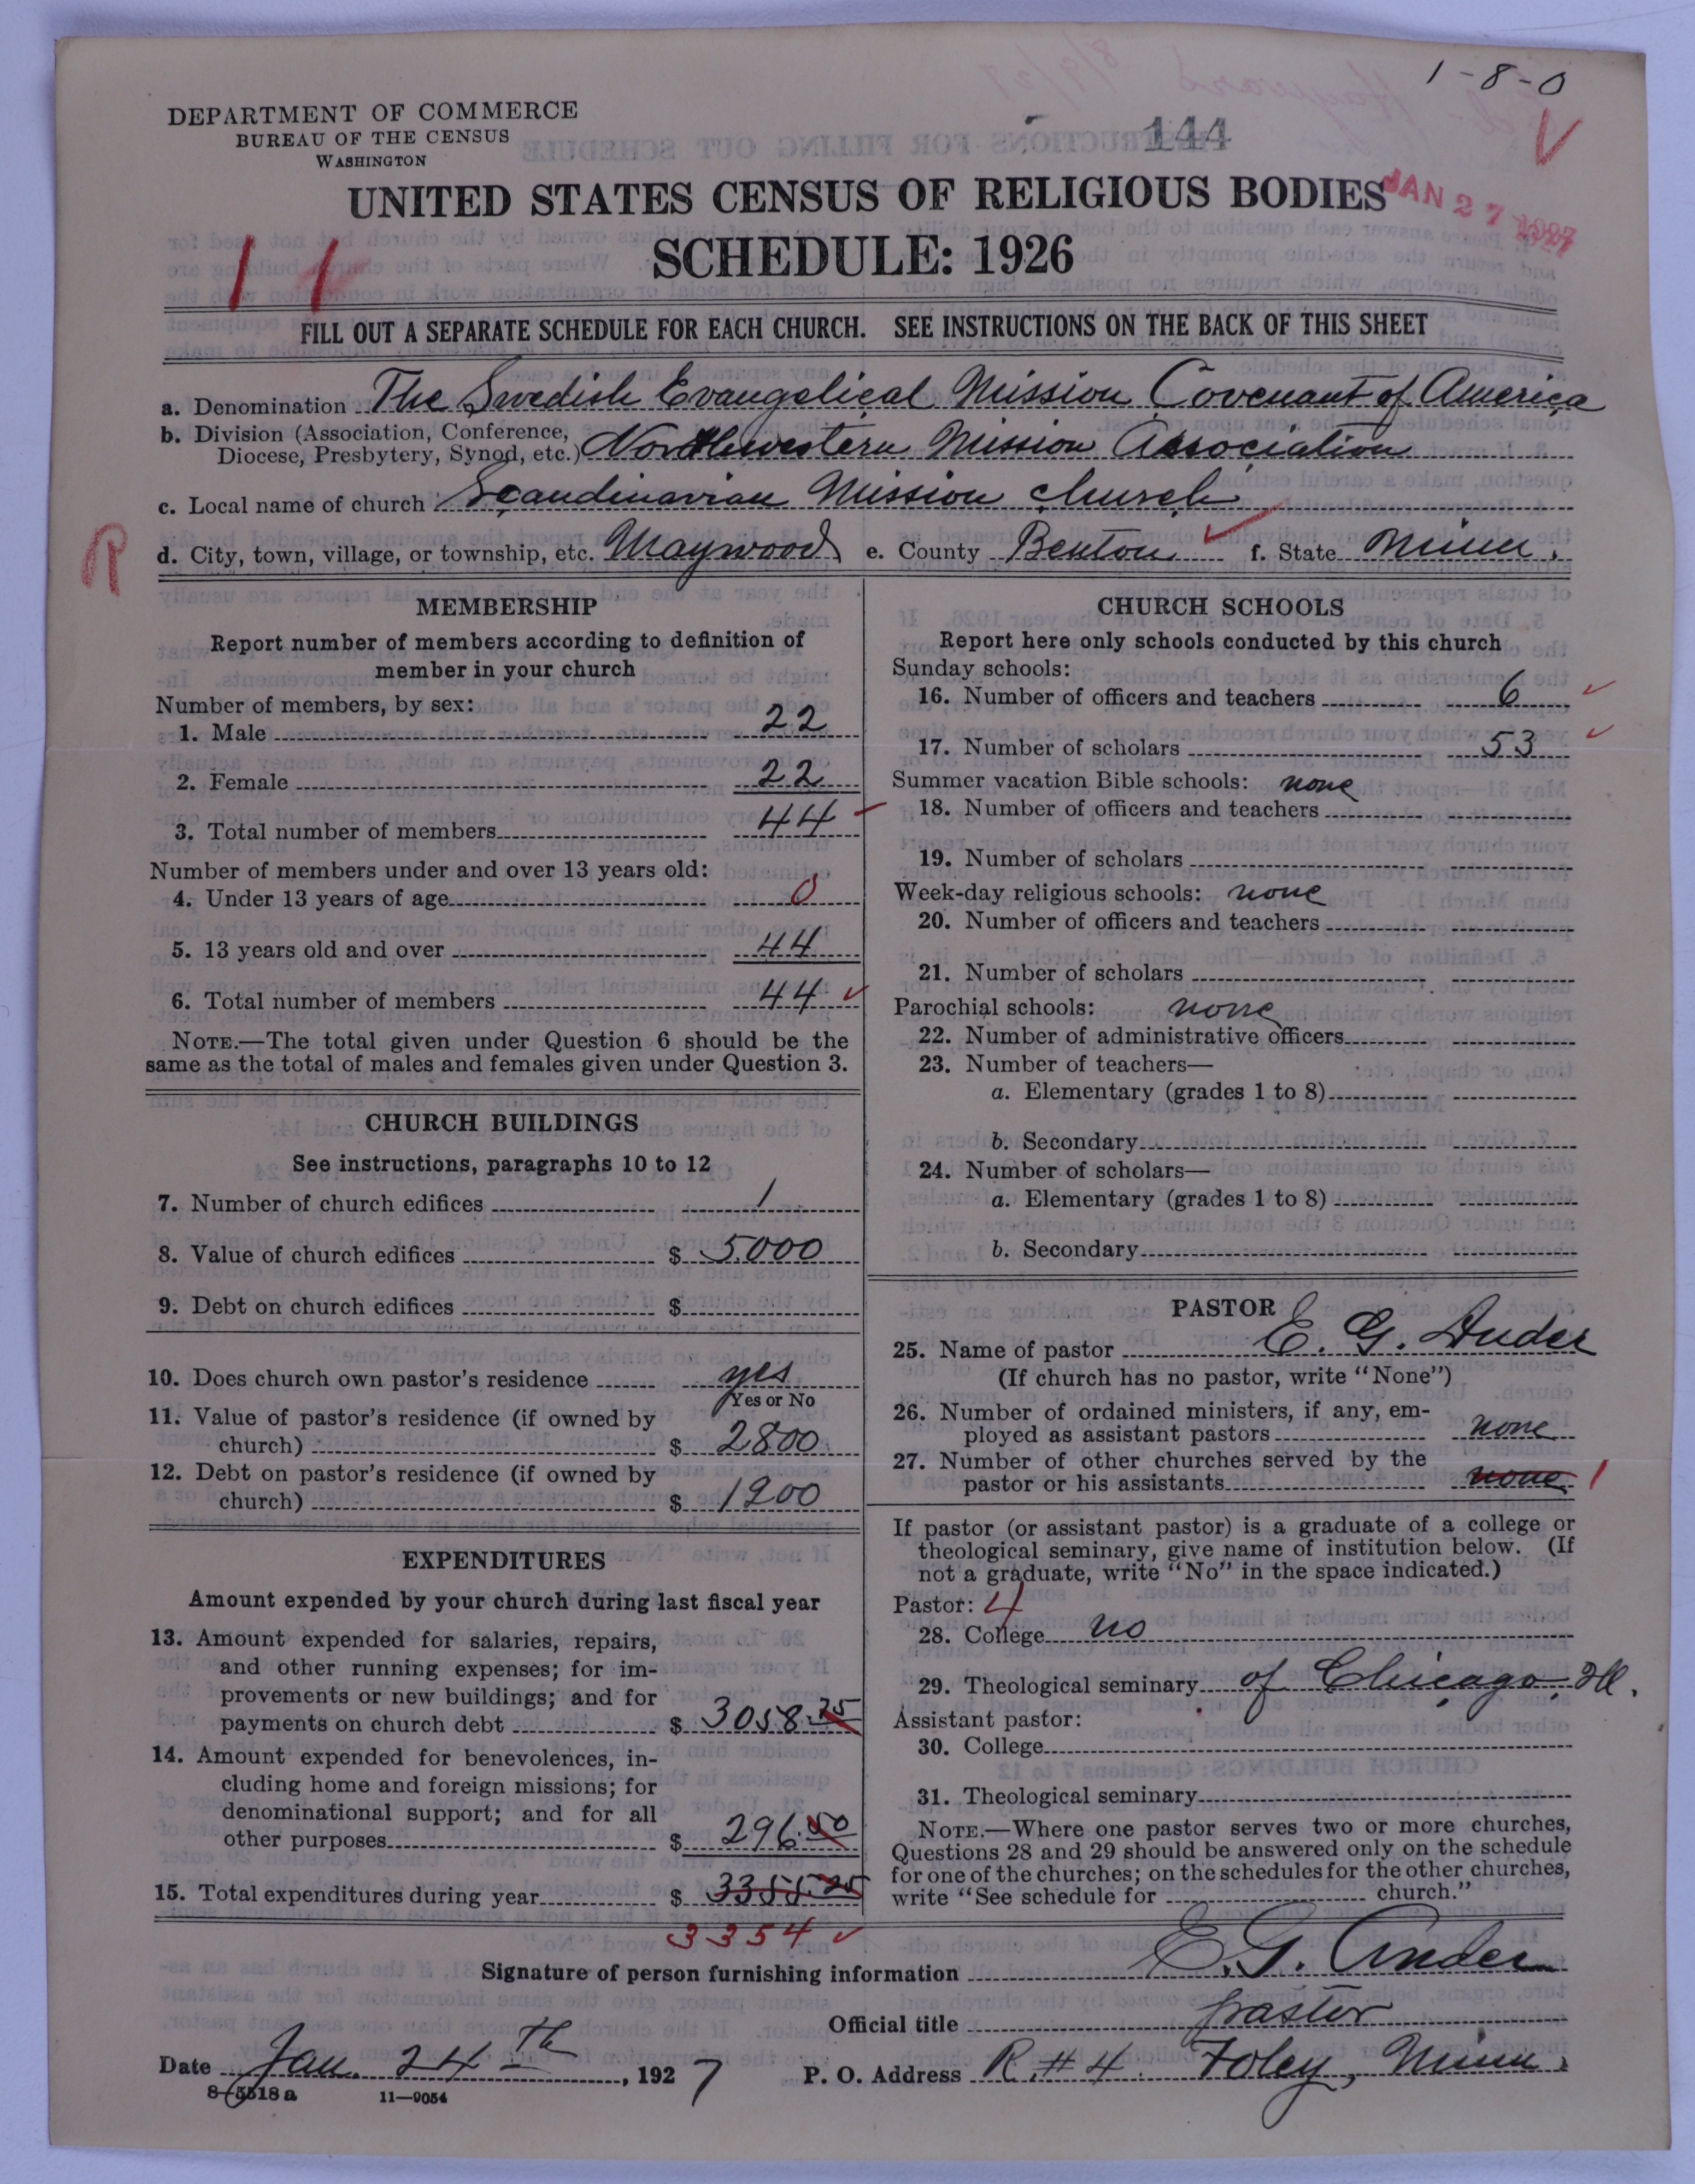 1-8-0
DEPARTMENT OF COMMERCE
BUREAU OF THE CENSUS
WASHINGTON
144
UNITED STATES CENSUS OF RELIGIOUS BODIES
JAN 27 1927
SCHEDULE: 1926
11
FILL OUT A SEPARATE SCHEDULE FOR EACH CHURCH. SEE INSTRUCTIONS ON THE BACK OF THIS SHEET
a. Denomination The Swedish Evangelical Mission Covenant of America
b. Division (Association, Conference, Diocese, Presbytery, Synod, etc.) Northwestern Mission Association
c. Local name of church Scandinavian Mission church
R
d. City, town, village, or township, etc. Maywood e. County Benton f. State Minn.
MEMBERSHIP
Report number of members according to definition of
member in your church
Number of members, by sex:
1. Male 22
2. Female 22
3. Total number of members 44
Number of members under and over 13 years old:
4. Under 13 years of age 0
5. 13 years old and over 44
6. Total number of members 44
NOTE.—The total given under Question 6 should be the
same as the total of males and females given under Question 3.
CHURCH BUILDINGS
See instructions, paragraphs 10 to 12
7. Number of church edifices 1
8. Value of church edifices $ 5000
9. Debt on church edifices $
10. Does church own pastor's residence yes
Yes or No
11. Value of pastor's residence (if owned by
church) $ 2800
12. Debt on pastor's residence (if owned by
church) $ 1200
EXPENDITURES
Amount expended by your church during last fiscal year
13. Amount expended for salaries, repairs,
and other running expenses; for im-
provements or new buildings; and for
payments on church debt $ 3058.75
14. Amount expended for benevolences, in-
cluding home and foreign missions; for
denominational support; and for all
other purposes $ 296.50
15. Total expenditures during year $ 3355.25
3354
CHURCH SCHOOLS
Report here only schools conducted by this church
Sunday schools:
16. Number of officers and teachers 6
17. Number of scholars 53
Summer vacation Bible schools: none
18. Number of officers and teachers
19. Number of scholars
Week-day religious schools: none
20. Number of officers and teachers
21. Number of scholars
Parochial schools: none
22. Number of administrative officers
23. Number of teachers—
a. Elementary (grades 1 to 8)
b. Secondary
24. Number of scholars—
a. Elementary (grades 1 to 8)
b. Secondary
PASTOR
25. Name of pastor E. G. Ander
(If church has no pastor, write "None")
26. Number of ordained ministers, if any, em-
ployed as assistant pastors none
27. Number of other churches served by the
pastor or his assistants none 1
If pastor (or assistant pastor) is a graduate of a college or
theological seminary, give name of institution below. (If
not a graduate, write "No" in the space indicated.)
Pastor: 4
28. College no
29. Theological seminary of Chicago, Ill.
Assistant pastor:
30. College
31. Theological seminary
NOTE.—Where one pastor serves two or more churches,
Questions 28 and 29 should be answered only on the schedule
for one of the churches; on the schedules for the other churches,
write "See schedule for church."
Signature of person furnishing information E. G. Ander
Official title pastor
Date Jan. 24th, 1927 P. O. Address R. #4 Foley, Minn.
8-5518a 11—9054